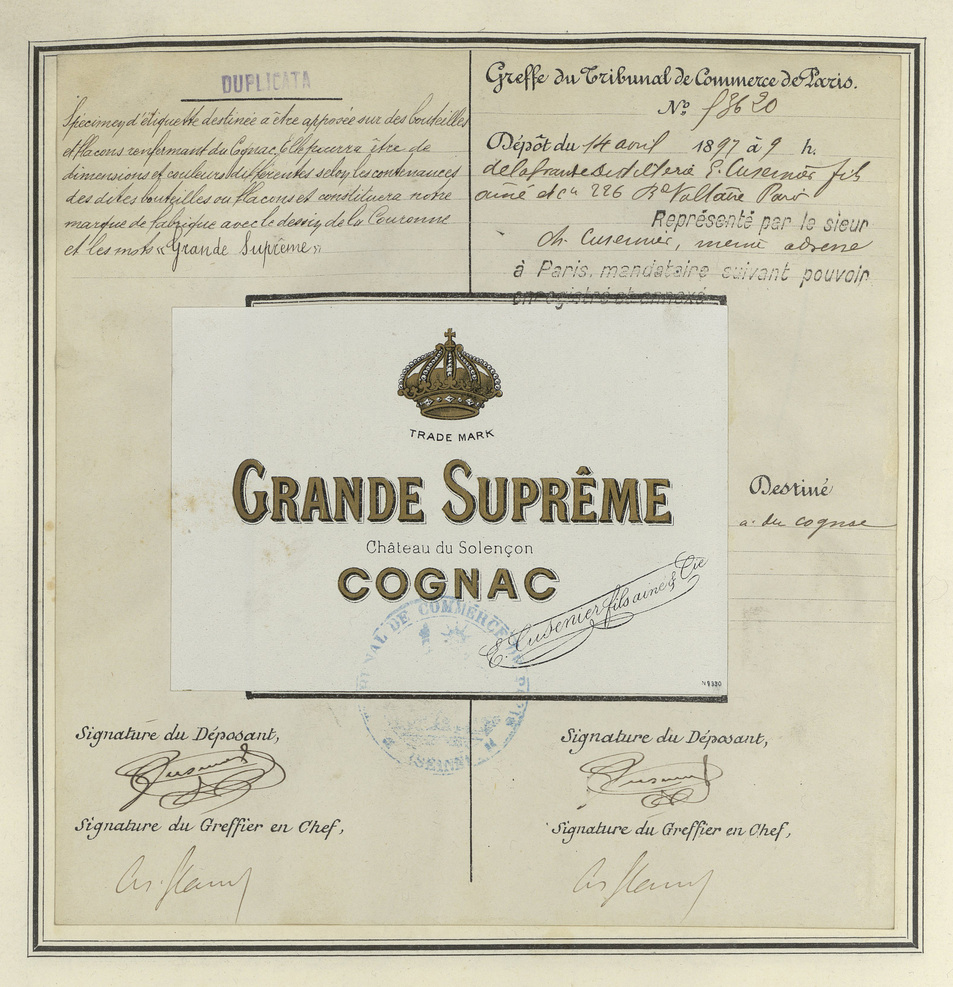 DUPLICATA
Spécimen d'étiquette destinée à être apposée sur des bouteilles
et flacons renfermant du Cognac. Elle pourra être de
dimensions et couleurs différentes selon les contenances
des dites bouteilles ou flacons et constituera notre
marque de fabrique avec le dessin de la Couronne
et les mots «Grande Suprême»
Greffe du Tribunal de Commerce de Paris.
No
Dépôt du 14 avril 1897 à 9 h.
de la franco Distillerie E. Cusenier fils
ainé et Cie 226 Bd Voltaire Paris
Représenté par le sieur
Ch. Cusenier, même adresse
à Paris, mandataire suivant pouvoir
enregistré et annexé
TRADE MARK
GRANDE SUPRÊME
Château du Solençon
COGNAC
E. Cusenier fils ainé & Cie
Destiné
à du cognac
TRIBUNAL DE COMMERCE
(SEINE)
Signature du Déposant,
Cusenier
Signature du Greffier en Chef,
Signature du Déposant,
Cusenier
Signature du Greffier en Chef,